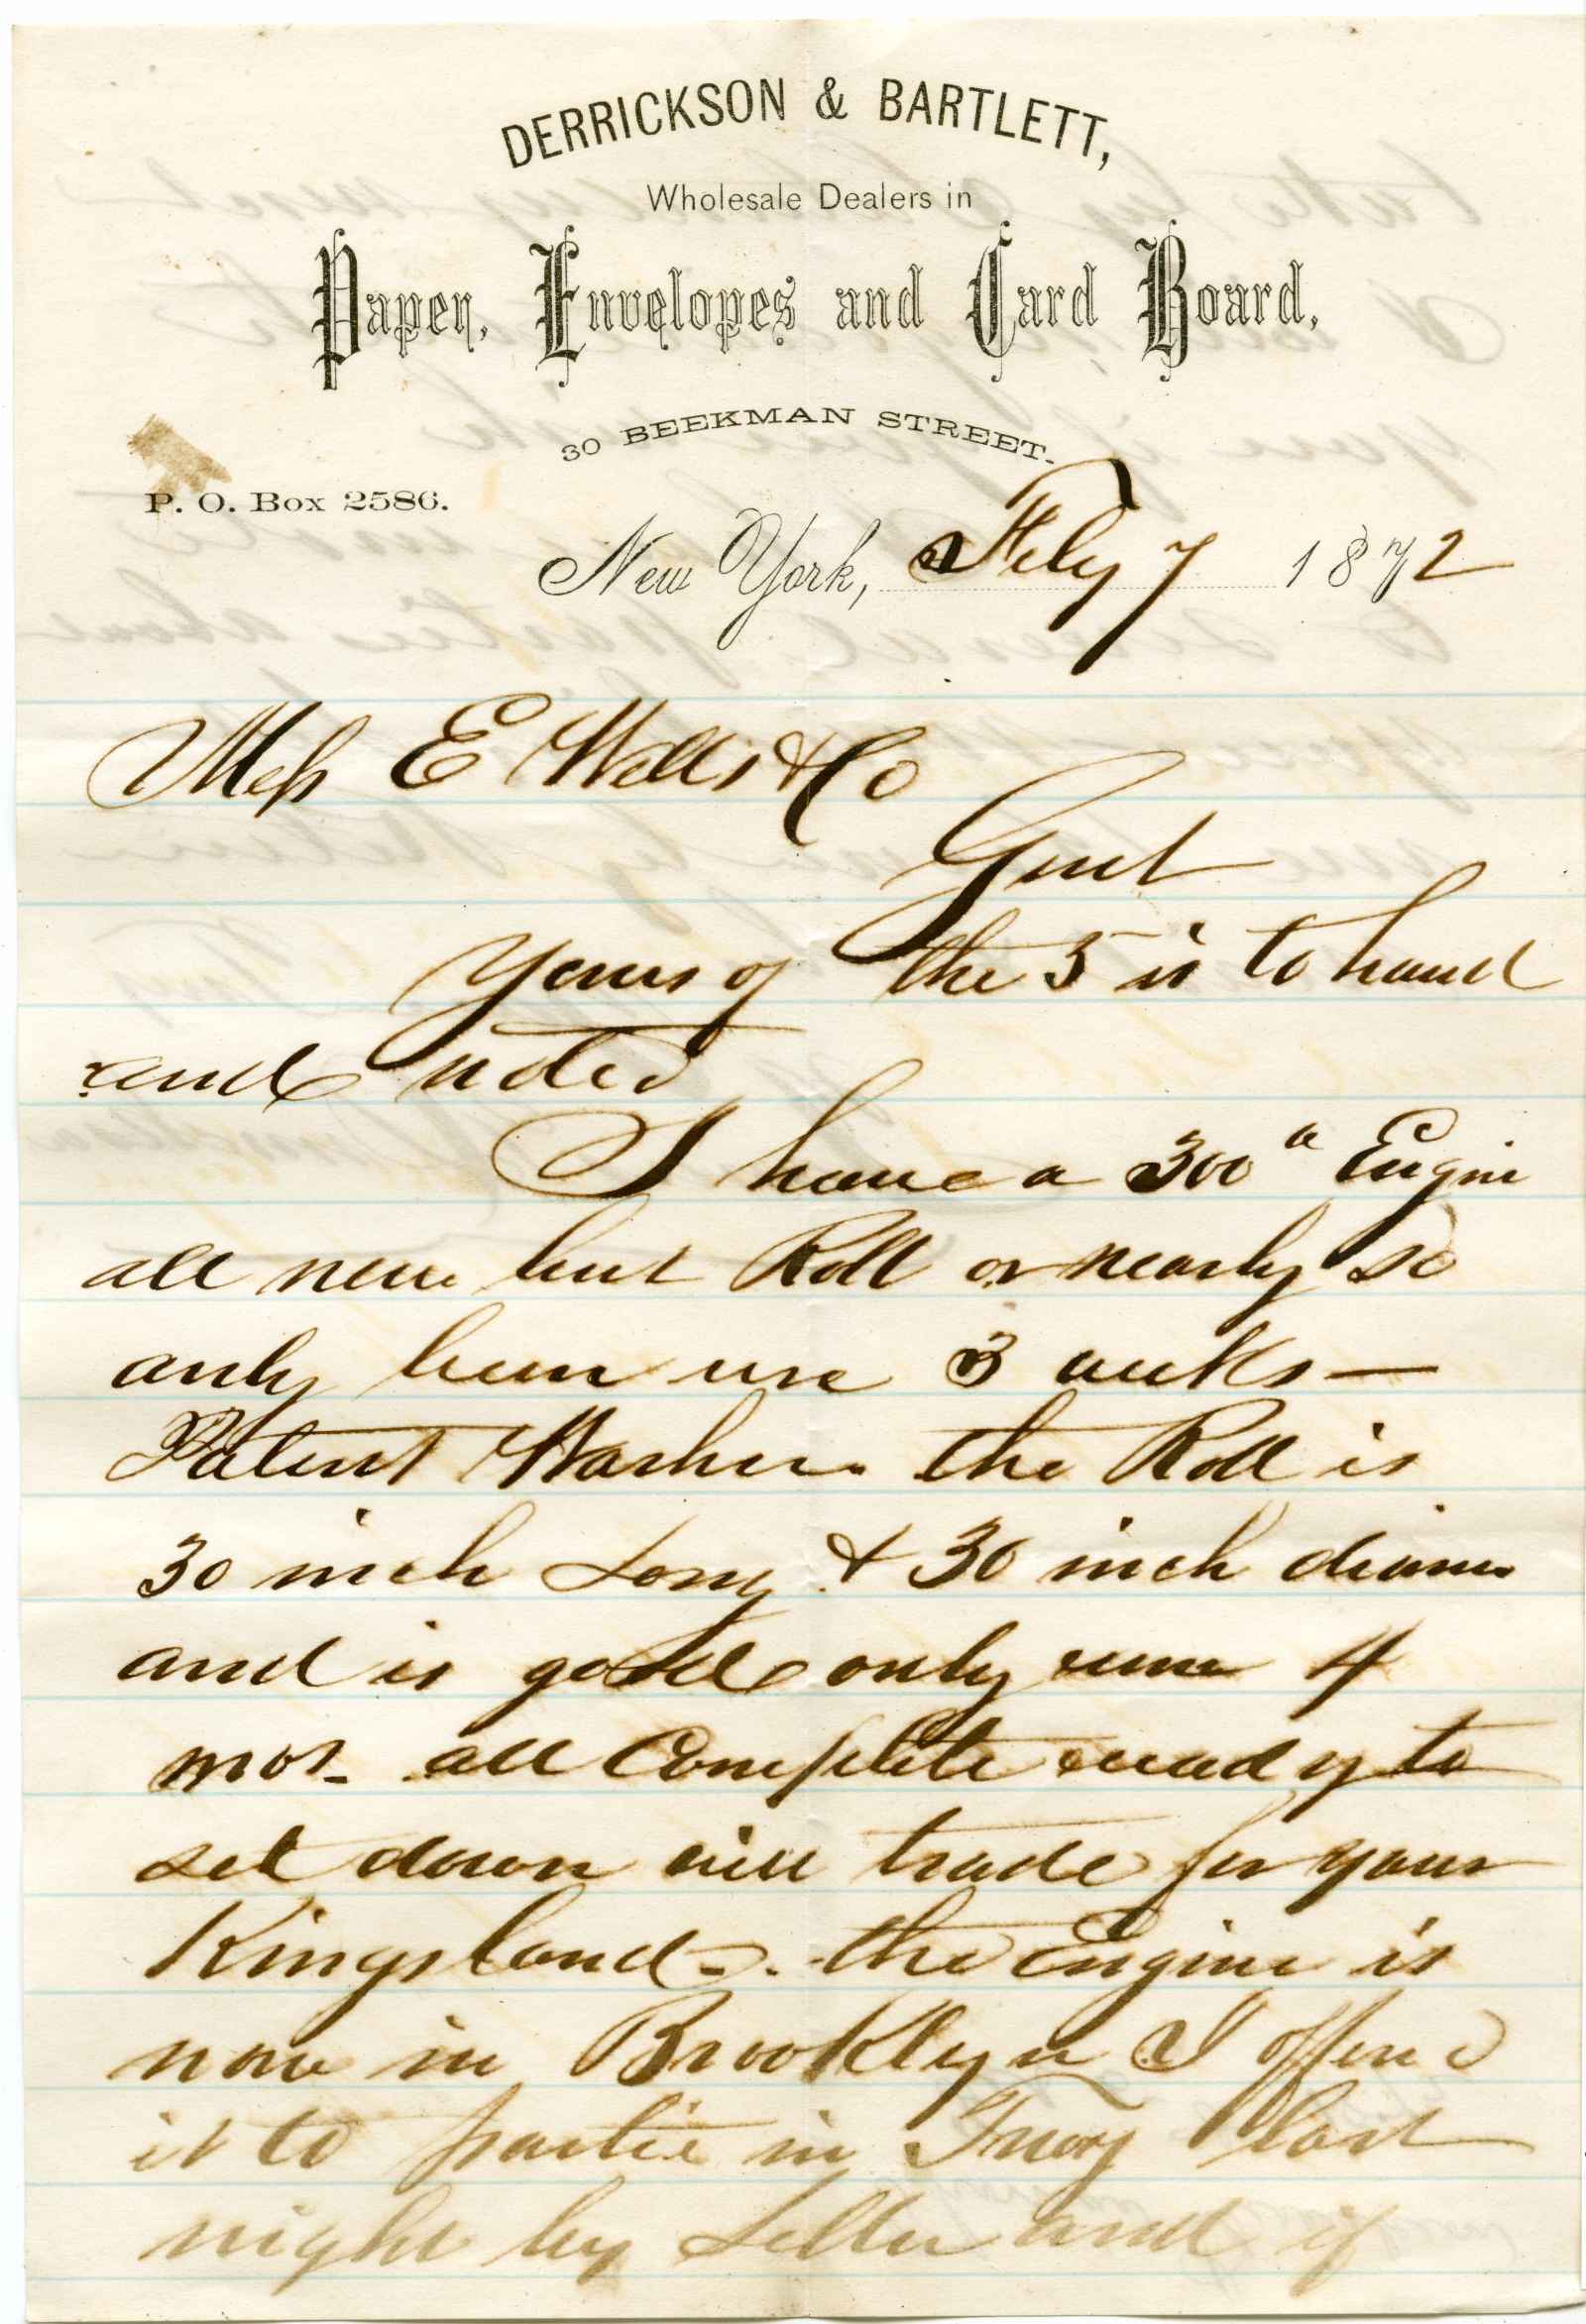 DERRICKSON & BARTLETT,
Wholesale Dealers in
Paper, Envelopes and Card Board,
30 BEEKMAN STREET.
P. O. Box 2586.
New York, Feby 7 1872
Mess E Wells & Co
Gent
Yours of the 5 is to hand
and noted
I have a 300 # Engine
all new but Roll or nearly so
only been use 3 weeks —
Patent Washer. the Roll is
30 inch Long & 30 inch diam
and is good only run 4
mos - all Complete ready to
set down will trade for your
Kingsland - . the Engine is
now in Brooklyn I offered
it to partie in Troy last
night by Letter and if